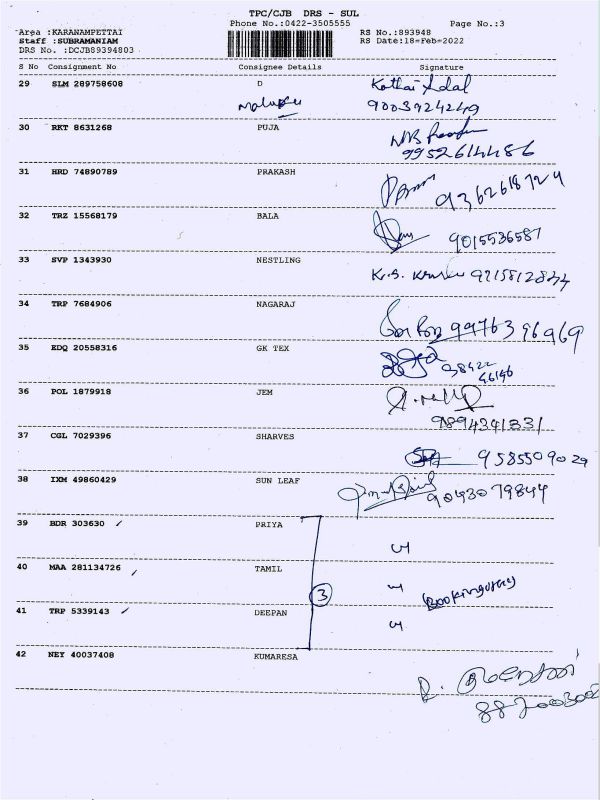 TPC/CJB DRS - SUL
Phone No.:0422-3505555
Page No.:3
Area :KARANAMPETTAI
Staff :SUBRAMANIAM
DRS No. :DCJB89394803
RS No.:893948
RS Date:18-Feb-2022
S No Consignment No Consignee Details Signature
29 SLM 289758608 D Kothai Adal
9003924249
30 RKT 8631268 PUJA
9952614486
31 HRD 74890789 PRAKASH
9362618724
32 TRZ 15568179 BALA
9015536587
33 SVP 1343930 NESTLING K.S.
34 TRP 7684906 NAGARAJ
9976396969
35 EDQ 20558316 GK TEX
98422
66146
36 POL 1879918 JEM
9894341331
37 CGL 7029396 SHARVES
9585509029
38 IXM 49860429 SUN LEAF
9043079844
39 BDR 303630 PRIYA
40 MAA 281134726 TAMIL
3
41 TRP 5339143 DEEPAN
42 NEY 40037408 KUMARESA